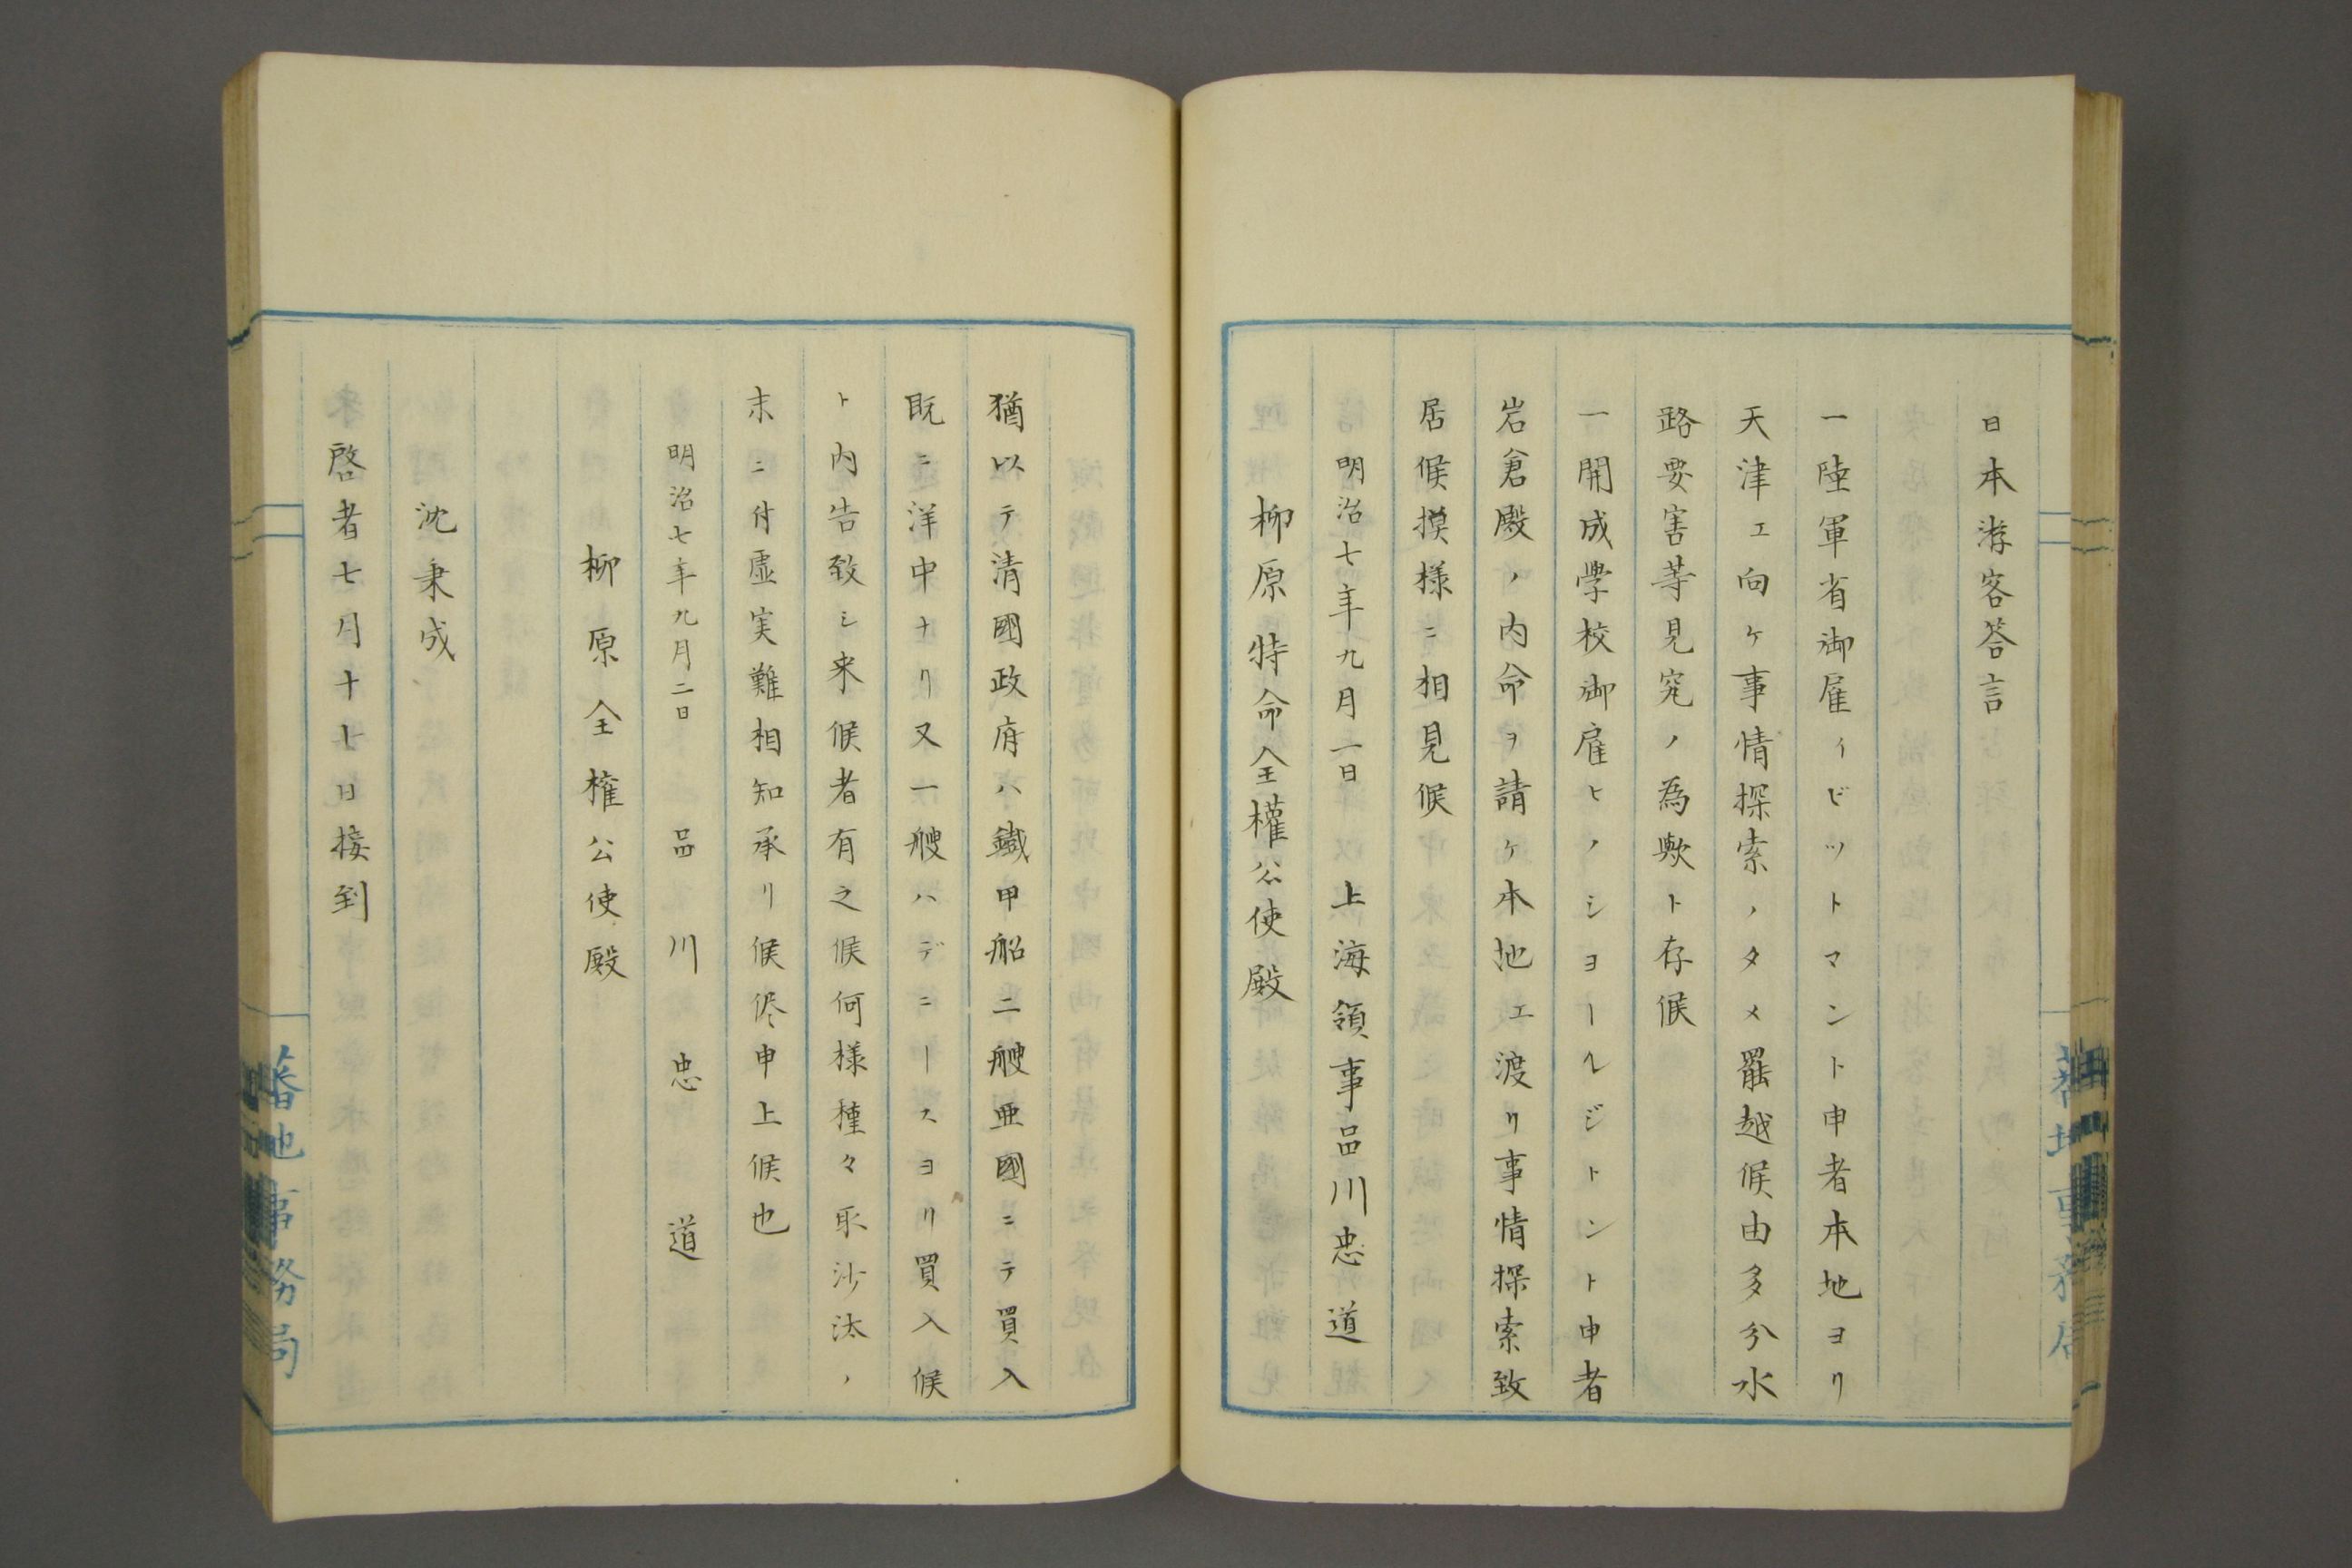 日本游客答言
一陸軍省御雇イビットマント申者本地ヨリ
天津エ向ケ事情探索ノタメ罷越候由多分水
路要害等見究ノ為歟ト存候
一開成学校御雇ヒノシヨールジトント申者
岩倉殿ノ内命ヲ請ケ本地エ渡リ事情探索致
居候摸様ニ相見候
明治七年九月一日　上海領事品川忠道
柳原特命全權公使殿
猶以テ清國政府ハ鐵甲船二艘亜國ニテ買入
既ニ洋中ナリ又一艘ハデニースヨリ買入候
ト内告致シ来候者有之候何様種々取沙汰ノ
末ニ付虚実難相知承リ候侭申上候也
明治七年九月二日　品川忠道
柳原全権公使殿
沈秉成
啓者七月十七日接到
蕃地事務局
蕃地事務局